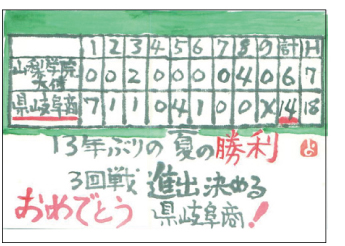 1 2 3 4 5 6 7 8 9 計 H
山梨学院大付 0 0 2 0 0 0 0 4 0 6 7
県岐阜商 7 1 1 0 4 1 0 0 X 14 18
13年ぶりの 夏の勝利
3回戦 進出決める
おめでとう 県岐阜商!